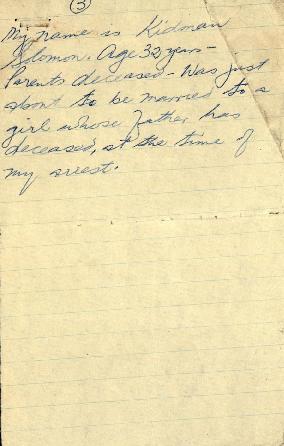 ③
My name is Kidman
Slomon. Age 32 years -
Parents deceased - Was just
about to be married to a
girl whose father has
deceased, at the time of
my arrest.